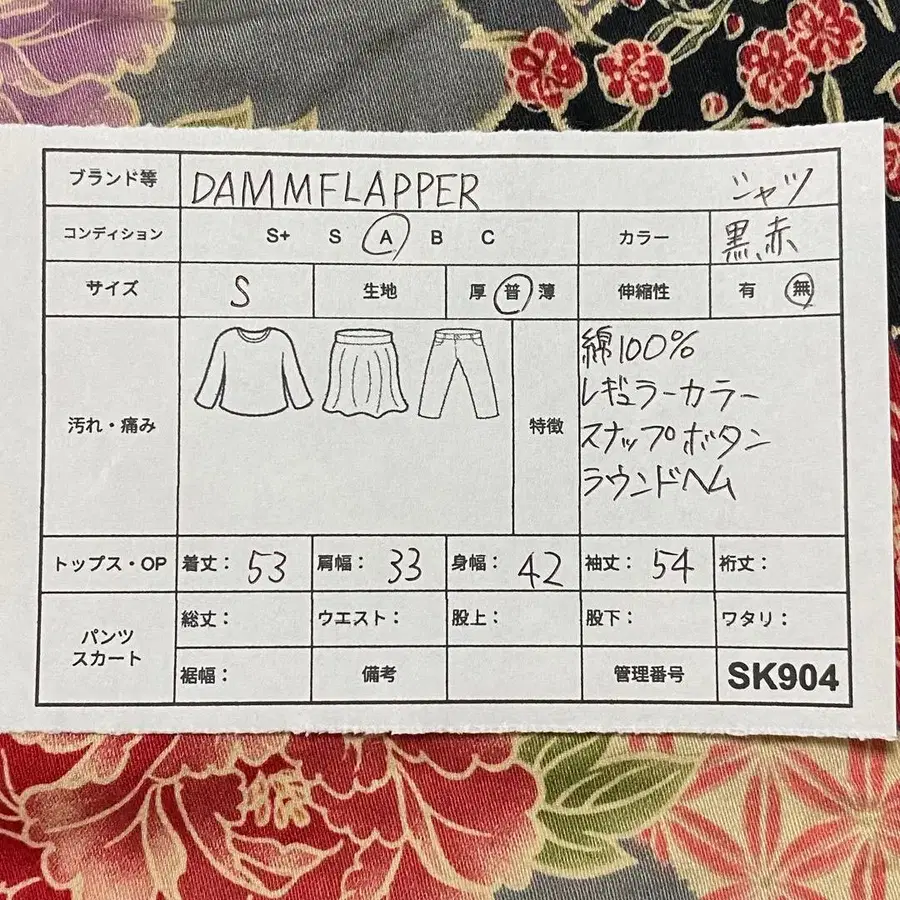 ブランド等 DAMMFLAPPER シャツ
コンディション S+ S A B C カラー 黒、赤
サイズ S 生地 厚 普 薄 伸縮性 有 無
汚れ・痛み 特徴
綿100%
レギュラーカラー
スナップボタン
ラウンドヘム
トップス・OP 着丈: 53 肩幅: 33 身幅: 42 袖丈: 54 裄丈:
パンツ
スカート
総丈: ウエスト: 股上: 股下: ワタリ:
裾幅: 備考 管理番号 SK904